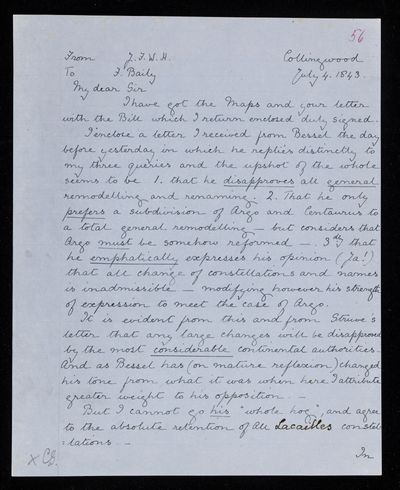 56
From J. F. W. H. Collingwood
To F. Baily July 4. 1843.
My dear Sir
I have got the Maps and your letter
with the Bill which I return enclosed duly signed.
I inclose a letter I received from Bessel the day
before yesterday in which he replies distinctly to
my three queries and the upshot of the whole
seems to be 1. that he disapproves all general
remodelling and renaming. 2. That he only
prefers a subdivision of Argo and Centaurus to
a total general remodelling — but considers that
Argo must be somehow reformed — . 3rdly that
he emphatically expresses his opinion (Ja!)
that all change of constellations and names
is inadmissible — modifying however his strength
of expression to meet the case of Argo.
It is evident from this and from Struve's
letter that any large changes will be disapproved
by the most considerable continental authorities —
And as Bessel has (on mature reflexion) changed
his tone from what it was when here I attribute
greater weight to his opposition. —
But I cannot go his "whole hog", and agree
to the absolute retention of all Lacailles constel
=lations. —
In
x